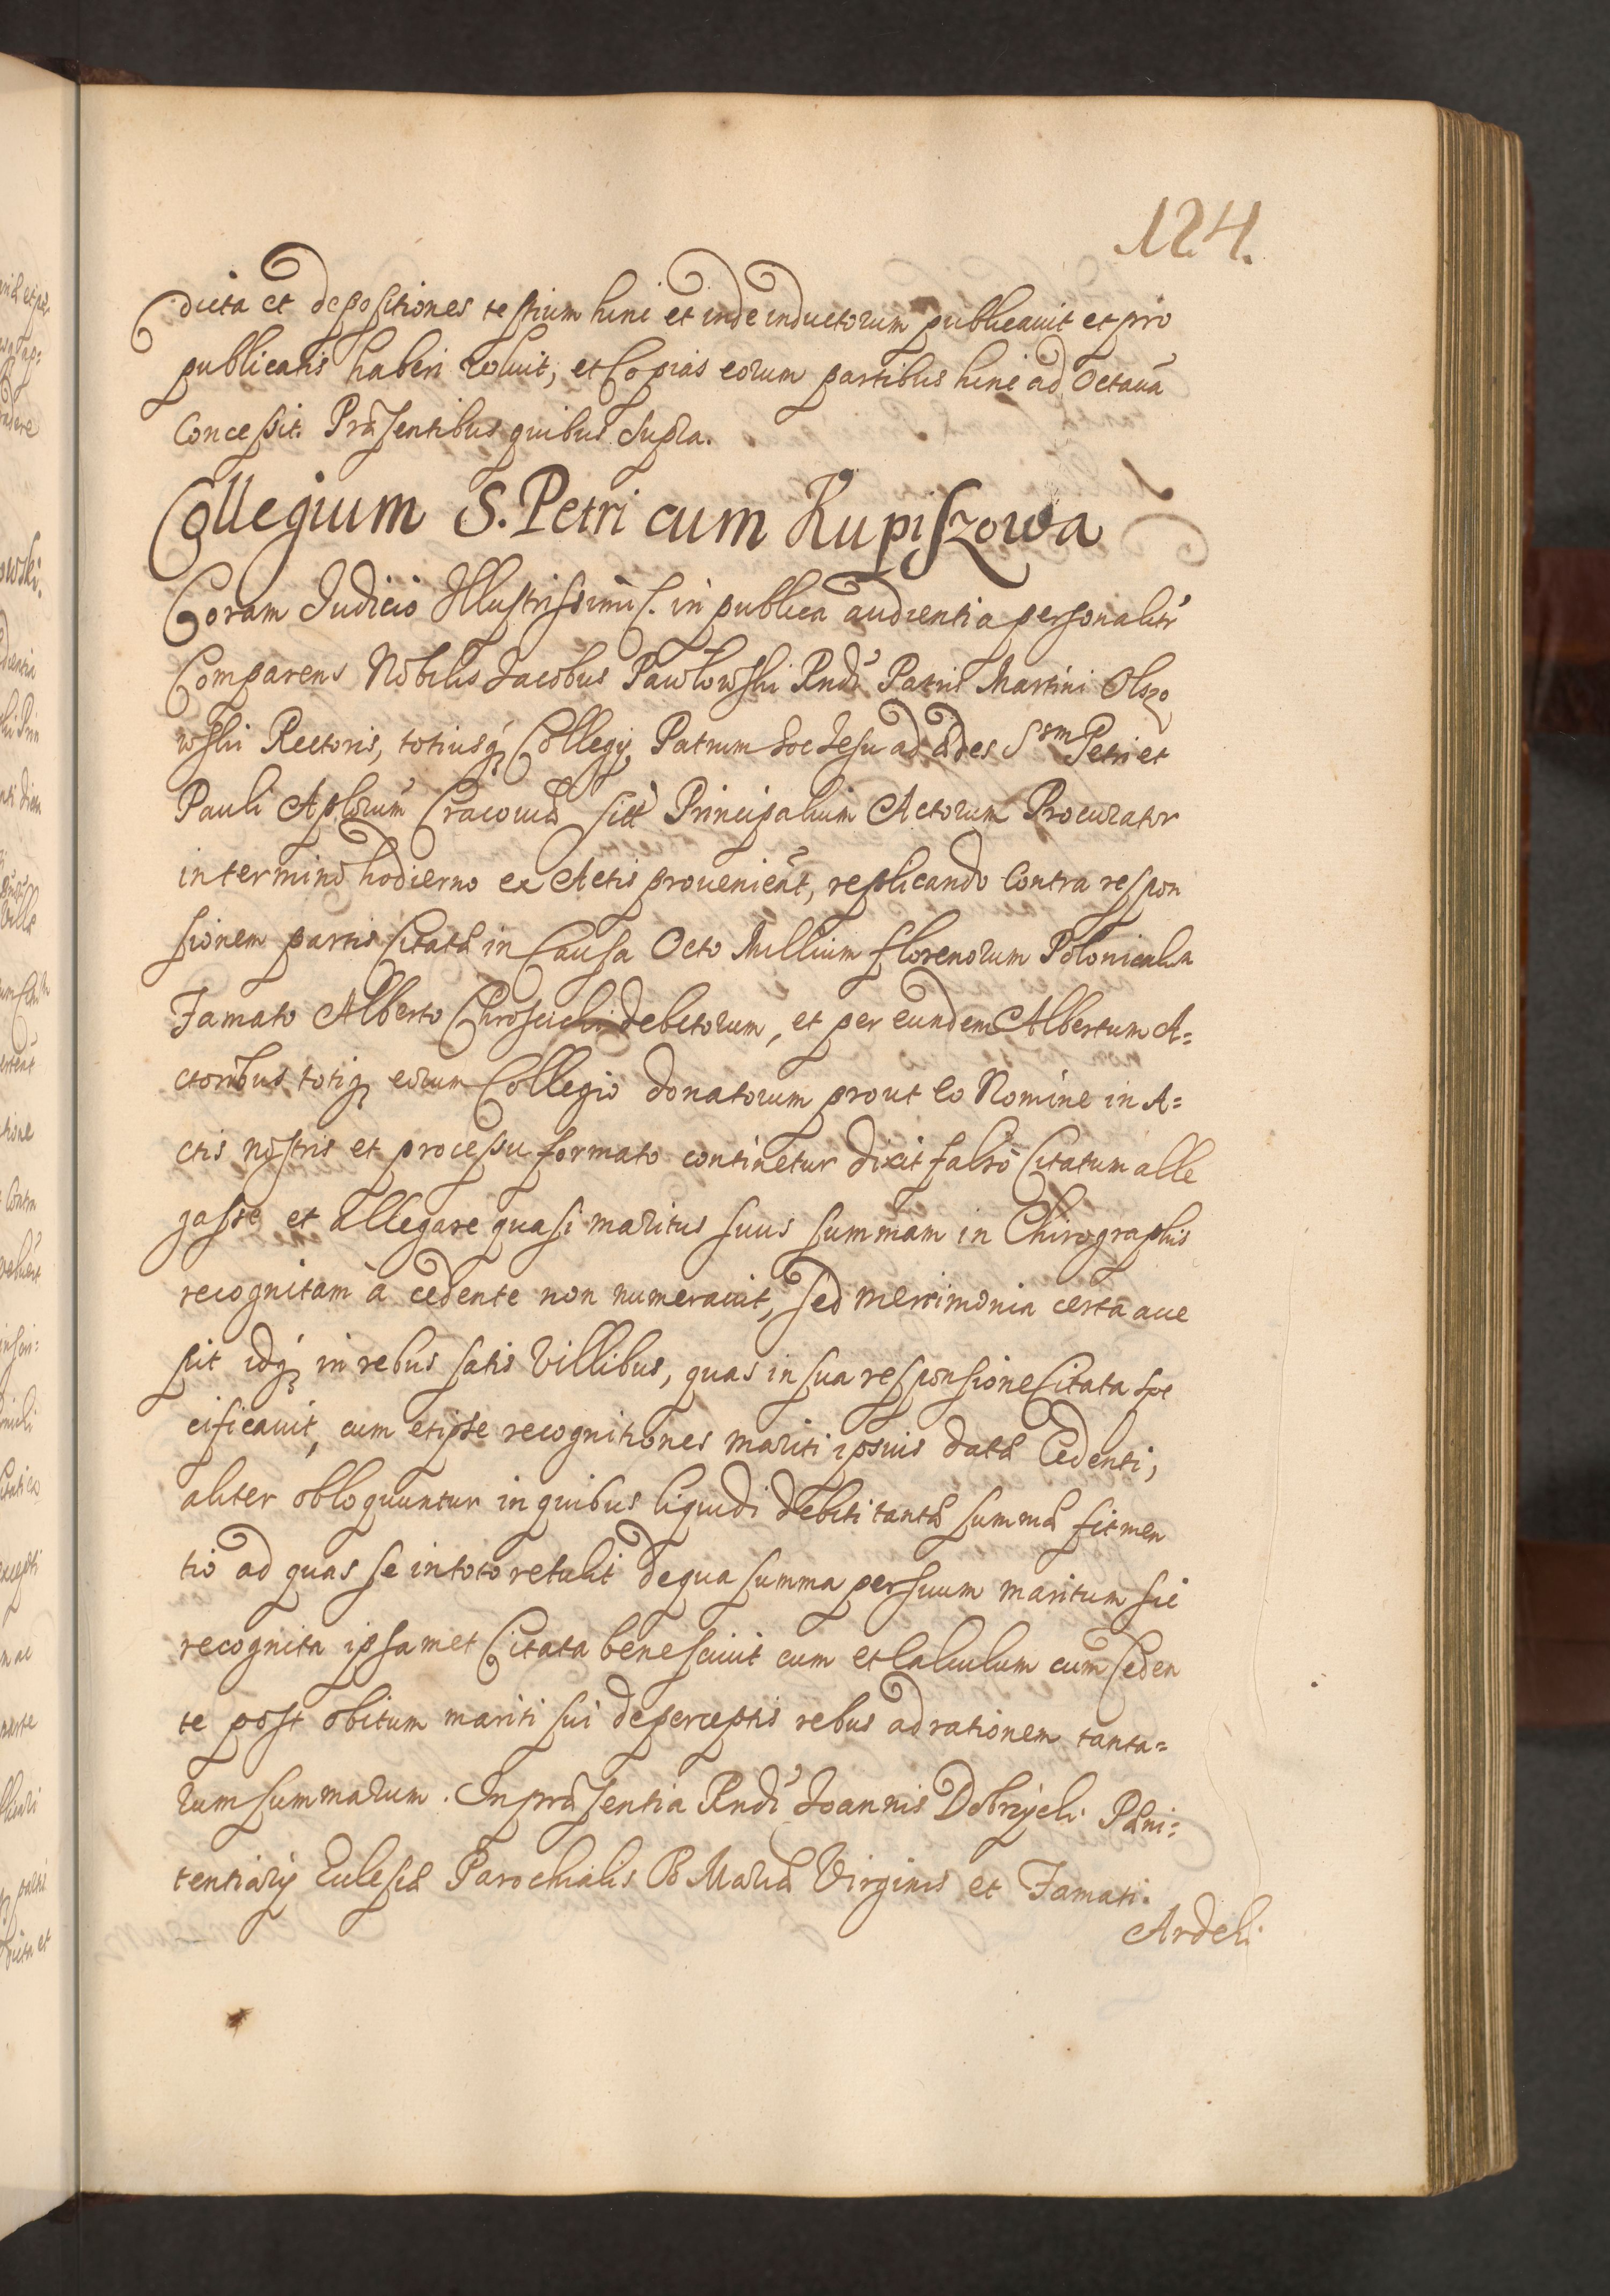 124.
dicta et depositiones testium hinc et inde inductorum publicavit et pro
publicatis haberi voluit, et Copias eorum partibus hinc ad Octavã
Concessit. Præsentibus quibus supra.
Collegium S. Petri cum Kupiszowa
Coram Judicio Illustrissimi S. in publica audientia personalitr
Comparens Nobilis Jacobus Pawlowski Rndi Patris Martini Olszo
wski Rectoris, totiusq Collegij Patrum Soc Jesu ad ædes Ssm Petri et
Pauli Aplorum Cracoviæ sitt Principalium Actorum Procurator
in termino hodierno ex Actis provenient, replicando Contra respon
sionem partis Citatæ in Causa Octo Millium florenorum Polonicaliu
Famato Alberto Chroscicki debitorum, et per eundem Albertum A=
ctoribus totiq eorum Collegio donatorum prout eo Nomine in A=
ctis nostris et processu formato continetur dixit falso Citatum alle
gasse et allegare quasi maritus suus summam in Chirographis
recognitam à cedente non numeravit, sed mercimonia certa acce
pit idq in rebus satis villibus, quas in sua responsione Citata spe
cificavit, cum et ipse recognitiones mariti ipsius datæ Cedenti,
aliter obloquuntur in quibus liquidi debiti tantæ summæ fit men
tio ad quas se in toto retulit de qua summa per suum maritum sic
recognita ipsamet Citata bene scivit cum et Calculum cum Ceden
te post obitum mariti sui de perceptis rebus ad rationem tanta=
rum summarum. In præsentia Rndi Joannis Dobrzycki Pæni=
tentiarij Ecclesiæ Parochialis B Mariæ Virginis et Famati
Ardeli